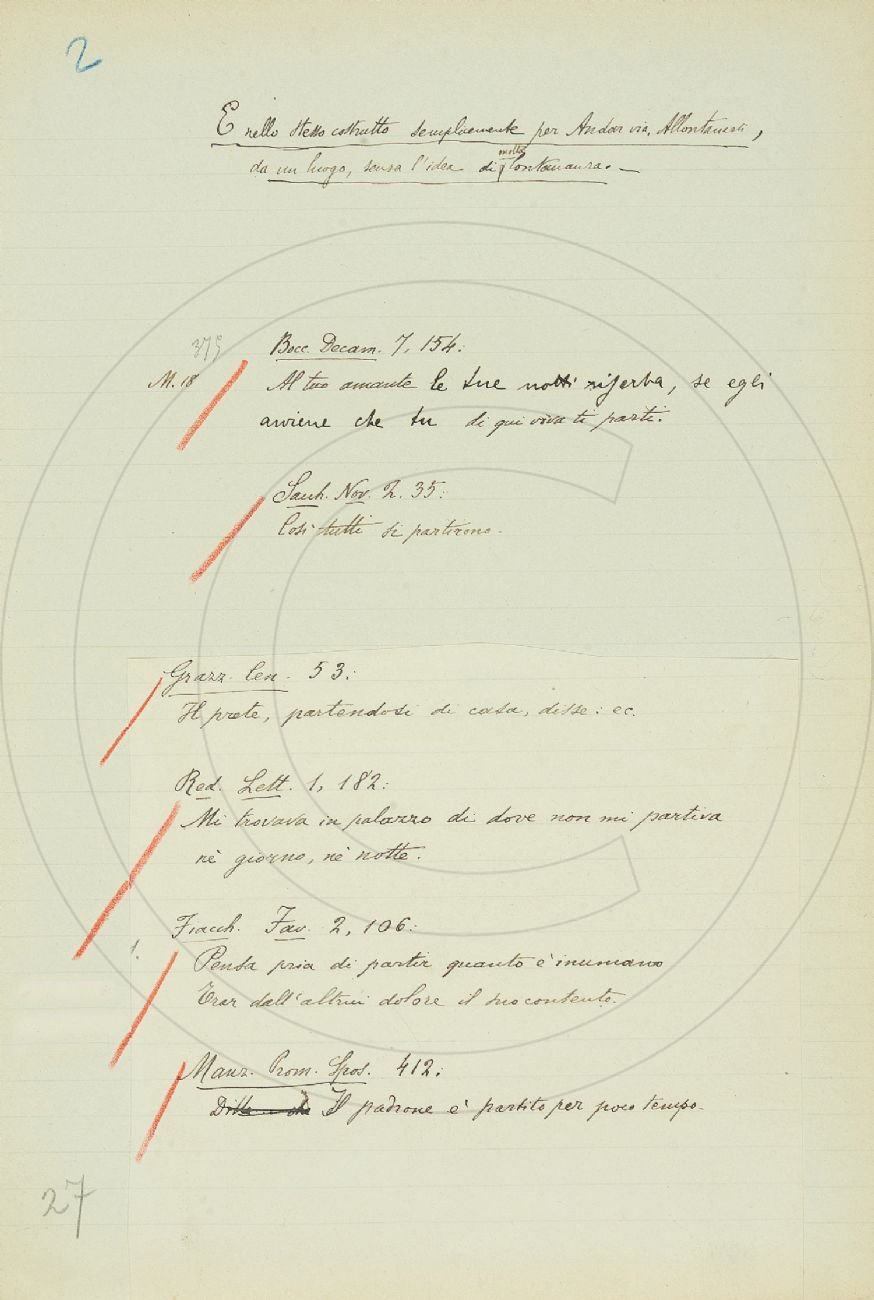 2
E nello stesso costrutto semplicemente per Andar via, Allontanarsi,
molta
da un luogo, senza l'idea di lontananza. —
375
Bocc. Decam. 7, 154:
M. 18
Al tuo amante le tue notti riserba, se egli
avviene che tu di qui viva ti parti.
Sacch. Nov. 2. 35:
Così tutti si partirono.
Grazz. Cen. 53:
Il prete, partendosi di casa, disse: ec.
Red. Lett. 1, 182:
Mi trovava in palazzo di dove non mi partiva
nè giorno, nè notte.
Fiacch. Fav. 2, 106:
1.
Pensa pria di partir quanto è inumano
Trar dall'altrui dolore il suo contento.
Manz. Prom. Spos. 412:
Il padrone è partito per poco tempo.
27